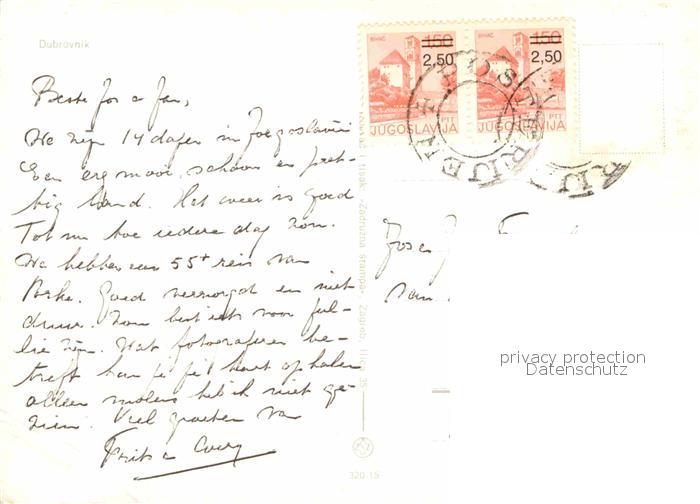 Dubrovnik
Beste Jos & Jan,
We zijn 14 dagen in Joegoslavië
Een erg mooi, schoon en pret-
tig land. Het weer is goed
Tot nu toe iedere dag zon.
We hebben een 55+ reis van
Goed verzorgd en niet
duur. Zou best iets voor jul-
lie zijn. Wat fotograferen be-
treft kan je je hart ophalen
alleen molens heb ik niet ge-
zien. Veel groeten van
Frits &
BIHAĆ
1,50
2,50
PTT
JUGOSLAVIJA
BIHAĆ
1,50
2,50
PTT
JUGOSLAVIJA
Tisak: Zadružna štampa - Zagreb
Jos & J
van
privacy protection
Datenschutz
320 15